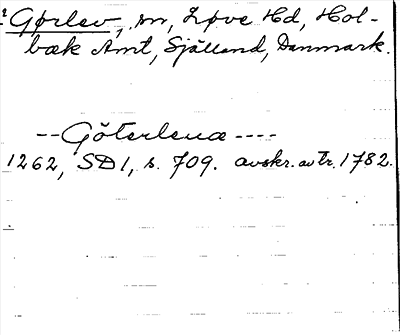 Gørlev, sn, Løve Hd, Hol-
bæk Amt, Sjælland, Danmark.
--Göterleuæ----
1262, SD 1, s. 709. avskr. av tr. 1782.